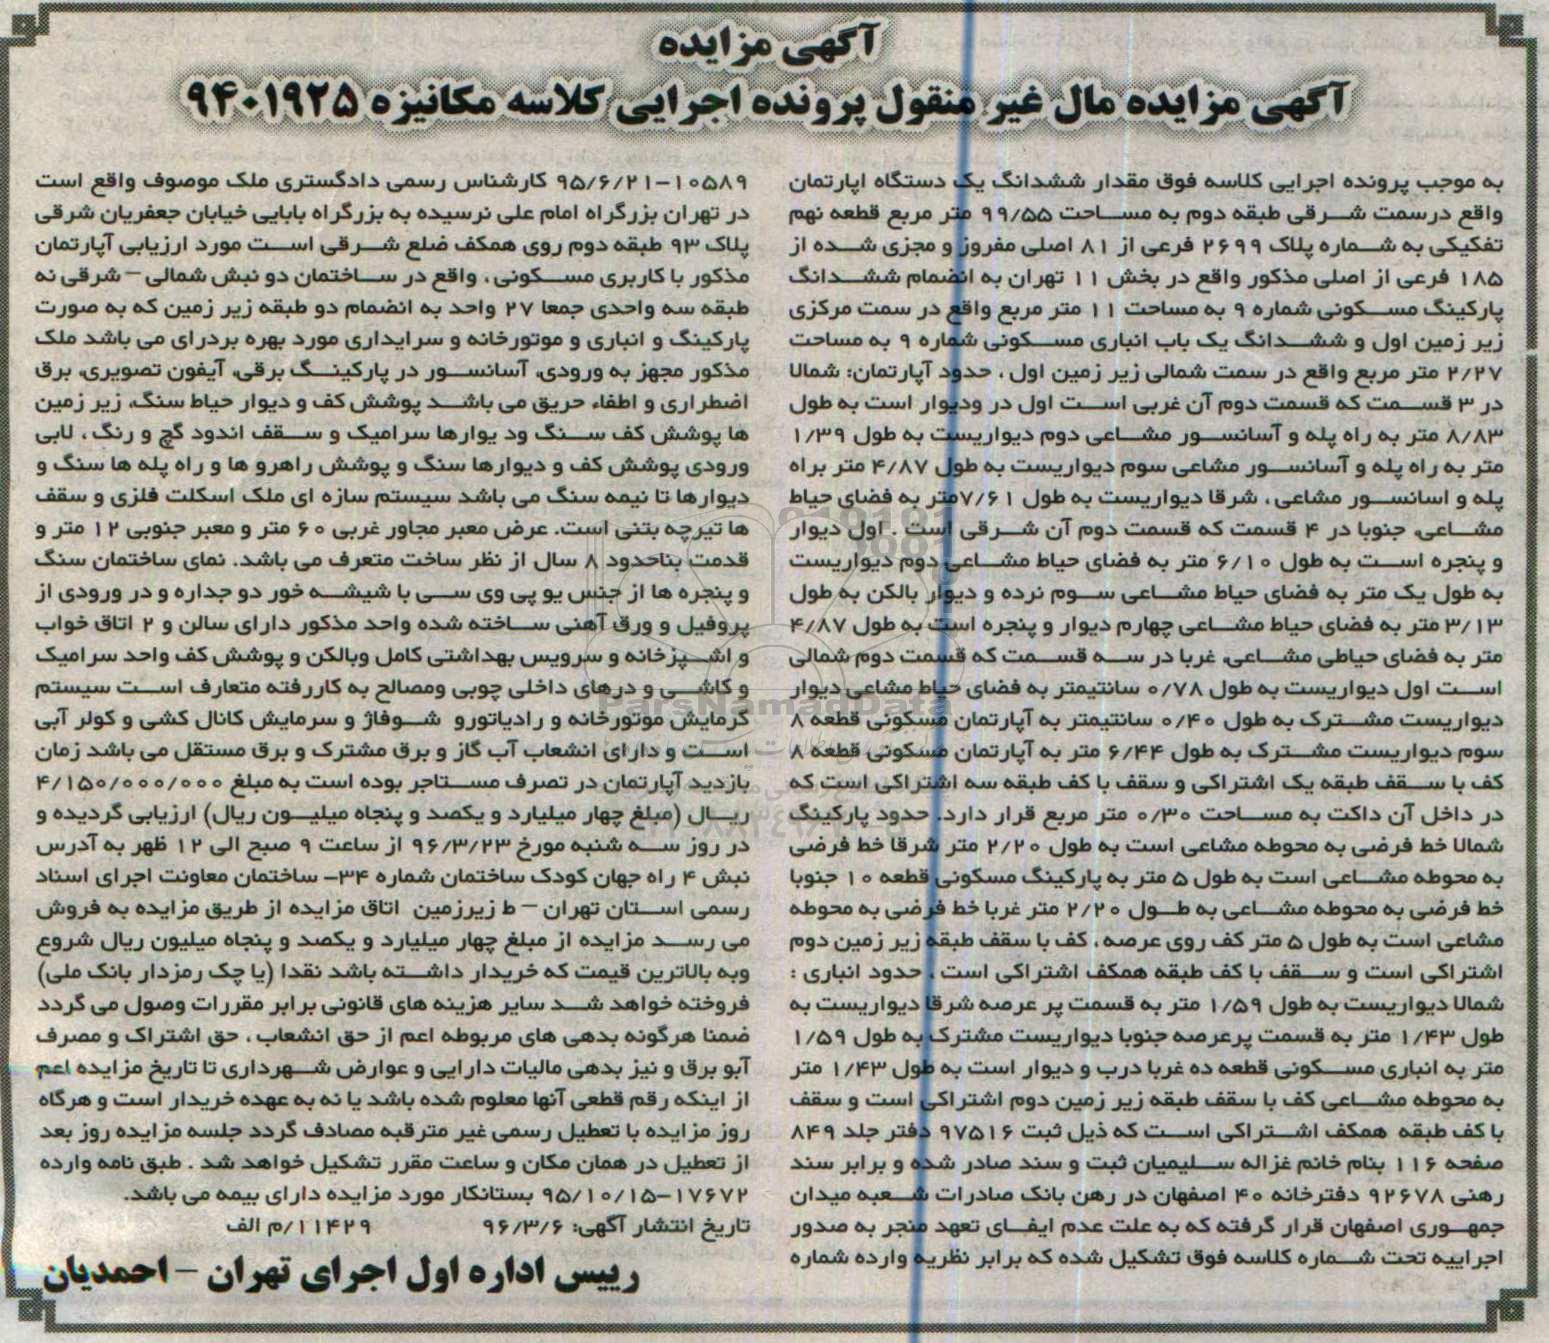 آگهی مزایده
آگهی مزایده مال غیر منقول پرونده اجرایی کلاسه مکانیزه ۹۴۰۱۹۲۵
به موجب پرونده اجرایی کلاسه فوق مقدار ششدانگ یک دستگاه اپارتمان
واقع درسمت شرقی طبقه دوم به مساحت ۹۹/۵۵ متر مربع قطعه نهم
تفکیکی به شماره پلاک ۲۶۹۹ فرعی از ۸۱ اصلی مفروز و مجزی شده از
۱۸۵ فرعی از اصلی مذکور واقع در بخش ۱۱ تهران به انضمام ششدانگ
پارکینگ مسکونی شماره ۹ به مساحت ۱۱ متر مربع واقع در سمت مرکزی
زیر زمین اول و ششدانگ یک باب انباری مسکونی شماره ۹ به مساحت
۲/۲۷ متر مربع واقع در سمت شمالی زیر زمین اول ، حدود آپارتمان: شمالا
در ۳ قسمت که قسمت دوم آن غربی است اول در ودیوار است به طول
۸/۸۳ متر به راه پله و آسانسور مشاعی دوم دیواریست به طول ۱/۳۹
متر به راه پله و آسانسور مشاعی سوم دیواریست به طول ۴/۸۷ متر براه
پله و اسانسور مشاعی ، شرقا دیواریست به طول ۷/۶۱متر به فضای حیاط
مشاعی، جنوبا در ۴ قسمت که قسمت دوم آن شرقی است . اول دیوار
و پنجره است به طول ۶/۱۰ متر به فضای حیاط مشاعی دوم دیواریست
به طول یک متر به فضای حیاط مشاعی سوم نرده و دیوار بالکن به طول
۳/۱۳ متر به فضای حیاط مشاعی چهارم دیوار و پنجره است به طول ۴/۸۷
متر به فضای حیاطی مشاعی، غربا در سه قسمت که قسمت دوم شمالی
است اول دیواریست به طول ۰/۷۸ سانتیمتر به فضای حیاط مشاعی دیوار
دیواریست مشترک به طول ۰/۴۰ سانتیمتر به آپارتمان مسکونی قطعه ۸
سوم دیواریست مشترک به طول ۶/۴۴ متر به آپارتمان مسکونی قطعه ۸
کف با سقف طبقه یک اشتراکی و سقف با کف طبقه سه اشتراکی است که
در داخل آن داکت به مساحت ۰/۳۰ متر مربع قرار دارد. حدود پارکینگ
شمالا خط فرضی به محوطه مشاعی است به طول ۲/۲۰ متر شرقا خط فرضی
به محوطه مشاعی است به طول ۵ متر به پارکینگ مسکونی قطعه ۱۰ جنوبا
خط فرضی به محوطه مشاعی به طول ۲/۲۰ متر غربا خط فرضی به محوطه
مشاعی است به طول ۵ متر کف روی عرصه ، کف با سقف طبقه زیر زمین دوم
اشتراکی است و سقف با کف طبقه همکف اشتراکی است ، حدود انباری :
شمالا دیواریست به طول ۱/۵۹ متر به قسمت پر عرصه شرقا دیواریست به
طول ۱/۴۳ متر به قسمت پرعرصه جنوبا دیواریست مشترک به طول ۱/۵۹
متر به انباری مسکونی قطعه ده غربا درب و دیوار است به طول ۱/۴۳ متر
به محوطه مشاعی کف با سقف طبقه زیر زمین دوم اشتراکی است و سقف
با کف طبقه همکف اشتراکی است که ذیل ثبت ۹۷۵۱۶ دفتر جلد ۸۴۹
صفحه ۱۱۶ بنام خانم غزاله سلیمیان ثبت و سند صادر شده و برابر سند
رهنی ۹۲۶۷۸ دفترخانه ۴۰ اصفهان در رهن بانک صادرات شعبه میدان
جمهوری اصفهان قرار گرفته که به علت عدم ایفای تعهد منجر به صدور
اجراییه تحت شماره کلاسه فوق تشکیل شده که برابر نظریه وارده شماره
۱۰۵۸۹-۹۵/۶/۲۱ کارشناس رسمی دادگستری ملک موصوف واقع است
در تهران بزرگراه امام علی نرسیده به بزرگراه بابایی خیابان جعفریان شرقی
پلاک ۹۳ طبقه دوم روی همکف ضلع شرقی است مورد ارزیابی آپارتمان
مذکور با کاربری مسکونی ، واقع در ساختمان دو نبش شمالی – شرقی نه
طبقه سه واحدی جمعا ۲۷ واحد به انضمام دو طبقه زیر زمین که به صورت
پارکینگ و انباری و موتورخانه و سرایداری مورد بهره بردرای می باشد ملک
مذکور مجهز به ورودی، آسانسور در پارکینگ برقی، آیفون تصویری، برق
اضطراری و اطفاء حریق می باشد پوشش کف و دیوار حیاط سنگ، زیر زمین
ها پوشش کف سنگ ود یوارها سرامیک و سقف اندود گچ و رنگ ، لابی
ورودی پوشش کف و دیوارها سنگ و پوشش راهرو ها و راه پله ها سنگ و
دیوارها تا نیمه سنگ می باشد سیستم سازه ای ملک اسکلت فلزی و سقف
ها تیرچه بتنی است. عرض معبر مجاور غربی ۶۰ متر و معبر جنوبی ۱۲ متر و
قدمت بناحدود ۸ سال از نظر ساخت متعرف می باشد. نمای ساختمان سنگ
و پنجره ها از جنس یو پی وی سی با شیشه خور دو جداره و در ورودی از
پروفیل و ورق آهنی ساخته شده واحد مذکور دارای سالن و ۲ اتاق خواب
و اشپزخانه و سرویس بهداشتی کامل وبالکن و پوشش کف واحد سرامیک
و کاشی و درهای داخلی چوبی ومصالح به کاررفته متعارف است سیستم
گرمایش موتورخانه و رادیاتورو شوفاژ و سرمایش کانال کشی و کولر آبی
است و دارای انشعاب آب گاز و برق مشترک و برق مستقل می باشد زمان
بازدید آپارتمان در تصرف مستاجر بوده است به مبلغ ۴/۱۵۰/۰۰۰/۰۰۰
ریال (مبلغ چهار میلیارد و یکصد و پنجاه میلیون ریال) ارزیابی گردیده و
در روز سه شنبه مورخ ۹۶/۳/۲۳ از ساعت ۹ صبح الی ۱۲ ظهر به آدرس
نبش ۴ راه جهان کودک ساختمان شماره ۳۴- ساختمان معاونت اجرای اسناد
رسمی استان تهران – ط زیرزمین اتاق مزایده از طریق مزایده به فروش
می رسد مزایده از مبلغ چهار میلیارد و یکصد و پنجاه میلیون ریال شروع
وبه بالاترین قیمت که خریدار داشته باشد نقدا (یا چک رمزدار بانک ملی)
فروخته خواهد شد سایر هزینه های قانونی برابر مقررات وصول می گردد
ضمنا هرگونه بدهی های مربوطه اعم از حق انشعاب ، حق اشتراک و مصرف
آبو برق و نیز بدهی مالیات دارایی و عوارض شهرداری تا تاریخ مزایده اعم
از اینکه رقم قطعی آنها معلوم شده باشد یا نه به عهده خریدار است و هرگاه
روز مزایده با تعطیل رسمی غیر مترقبه مصادف گردد جلسه مزایده روز بعد
از تعطیل در همان مکان و ساعت مقرر تشکیل خواهد شد . طبق نامه وارده
۱۷۶۷۲-۹۵/۱۰/۱۵ بستانکار مورد مزایده دارای بیمه می باشد.
تاریخ انتشار آگهی: ۹۶/۳/۶ ۱۱۴۲۹/م الف
رییس اداره اول اجرای تهران – احمدیان
ParsNamadData